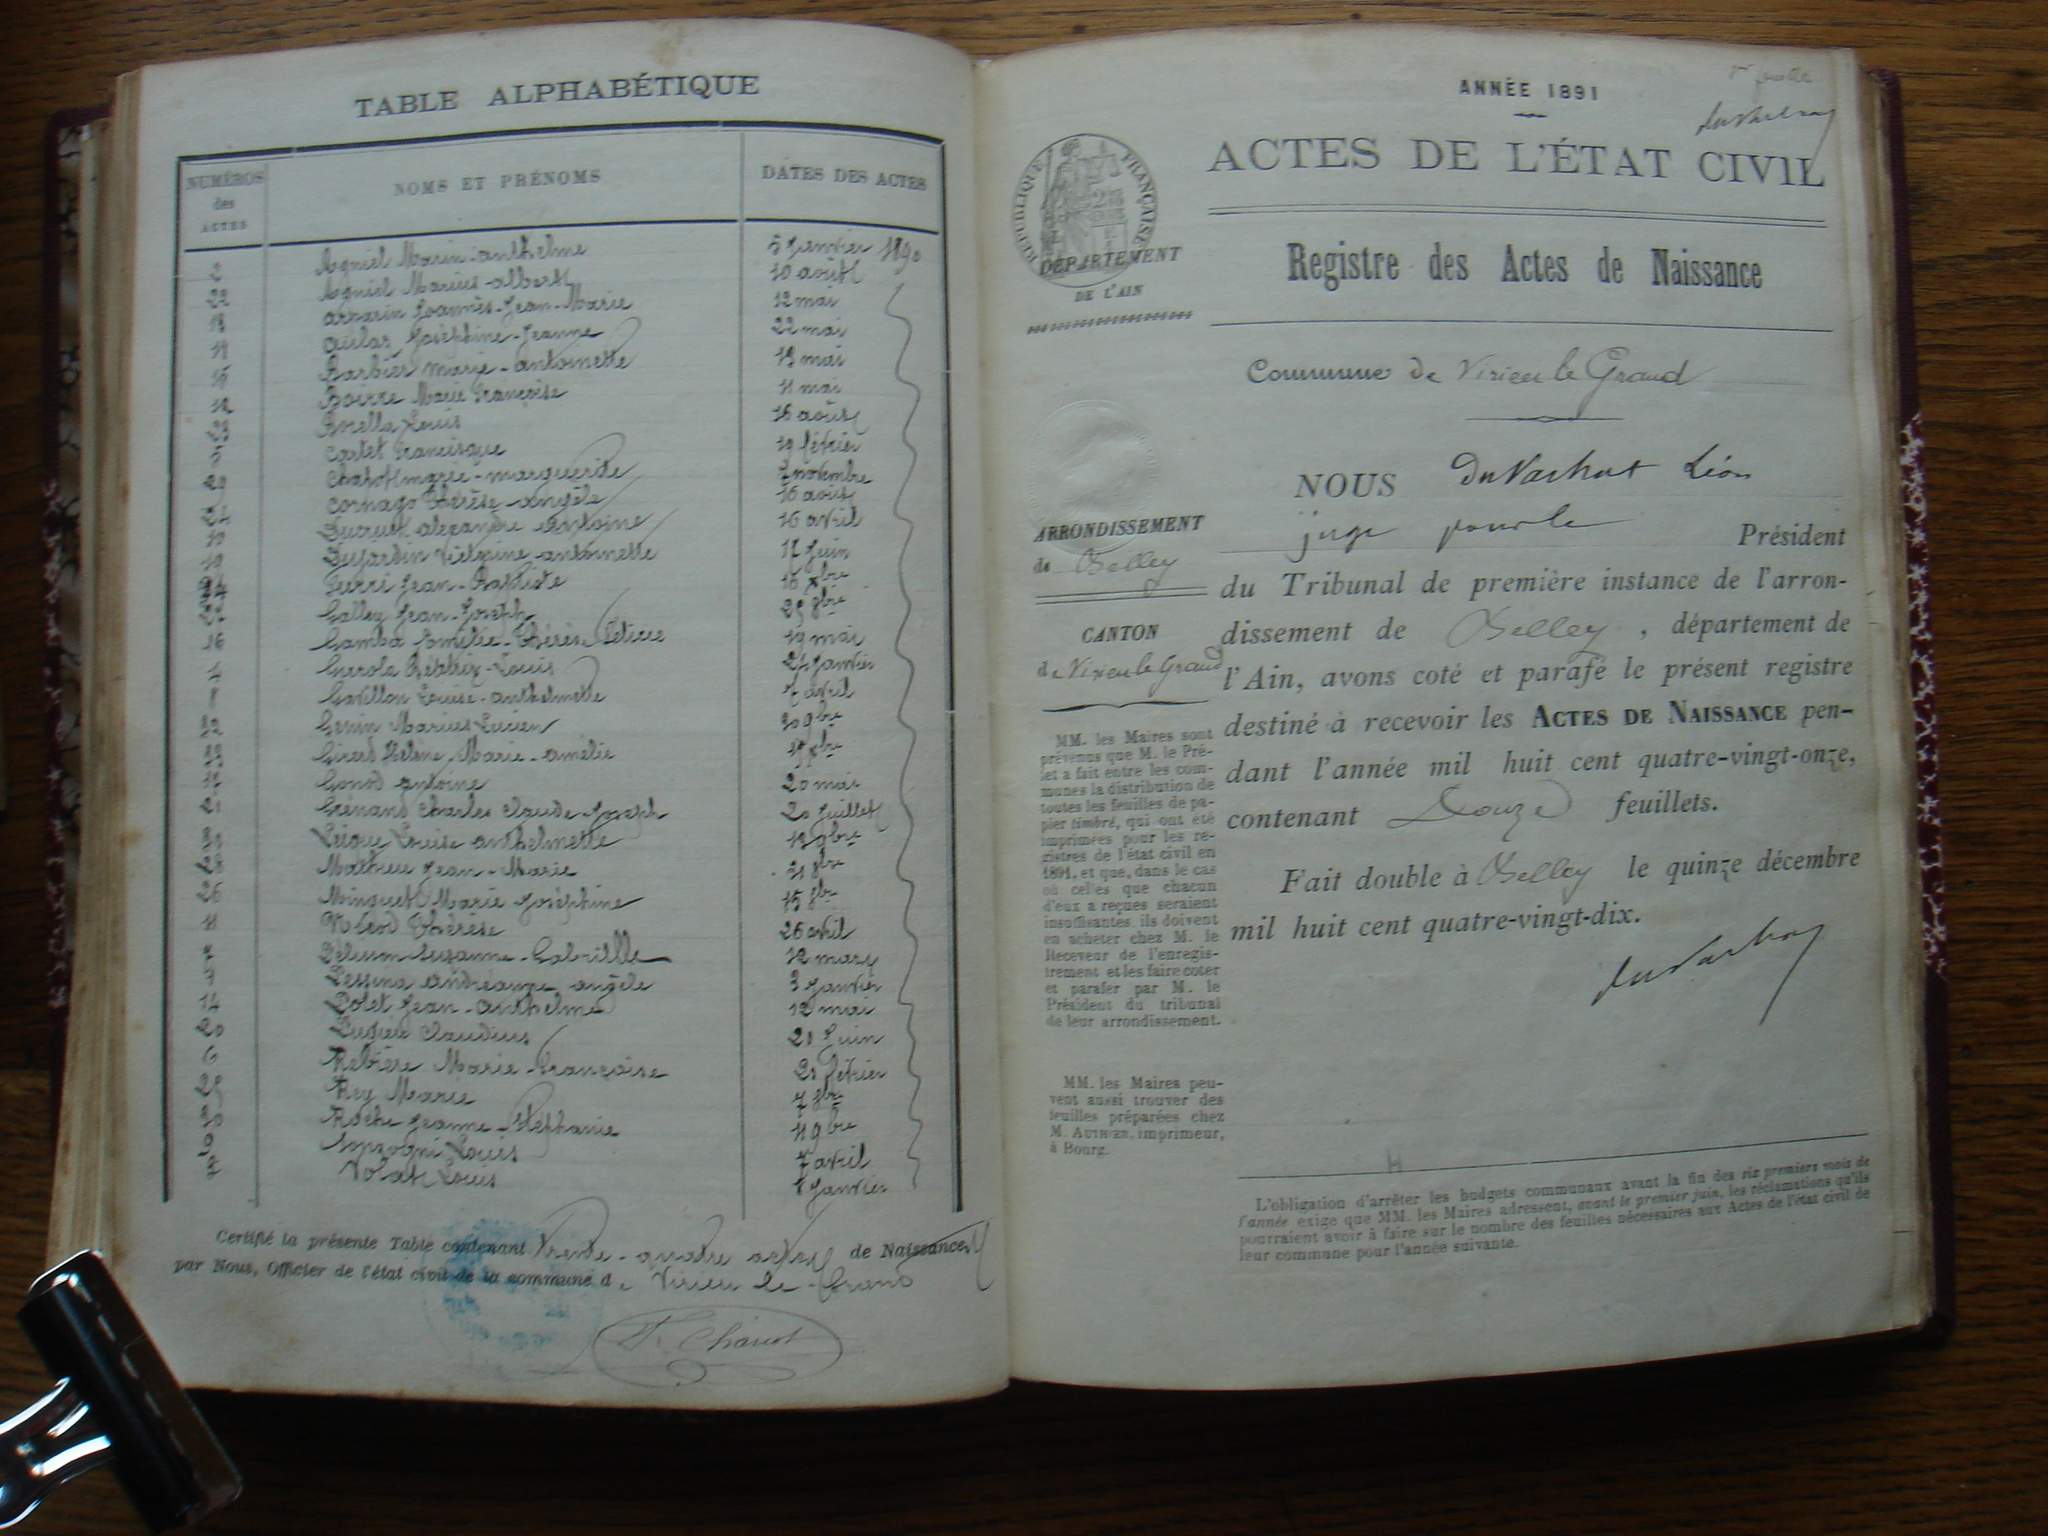 TABLE ALPHABÉTIQUE
NUMÉROS des ACTES
NOMS ET PRÉNOMS
DATES DES ACTES
2 Agniel Marin-anthelme 5 Janvier 1890
22 Agniel Marius-albert 10 août
13 Joannès-Jean-Marie 12 mai
Joséphine-Jeanne 22 mai
15 Barbier marie-antoinette 19 mai
12 Marie Françoise 11 mai
23 Louis 16 août
5 Cartet Francisque 19 février
marie-marguerite 7 novembre
Cornago Thérèse-angèle 16 août
10 Ducruet alexandre antoine 16 avril
19 Dujardin antoinette 17 Juin
Ferri Jean-Baptiste 16 xbre
Galley Jean-Joseph 25 8bre
16 Gamba Thérèse 19 mai
4 Louis 24 Janvier
8 Gavillon Louise-anthelmette 7 avril
32 Genin Marius Lucien 20 9bre
33 Girerd Helène Marie-amélie
17 Gonod antoine 20 mai
21 Grenand Charles Claude-Joseph 20 Juillet
Louise anthelmette 13 9bre
28 Mathieu Jean-Marie 21 8bre
26 Minguet Marie Joséphine 15 8bre
11 Thérèse 26 avril
7 Suzanne-Gabrillle 12 mars
1 angèle 3 Janvier
14 Jean-anthelme 12 mai
20 Claudius 21 Juin
6 Rebière Marie-Françoise 21 février
25 Rey Marie 7 8bre
30 Roche Jeanne-Stéphanie 11 9bre
9 Louis 7 avril
Volat Louis 8 Janvier
Certifié la présente Table contenant Trente-quatre actes de Naissances
par Nous, Officier de l'état civil de la commune de Virieu-le-Grand
Charvet
ANNÉE 1891
ACTES DE L'ÉTAT CIVIL
RÉPUBLIQUE FRANÇAISE
DÉPARTEMENT
DE L'AIN
Registre des Actes de Naissance
Commune de Virieu le Grand
ARRONDISSEMENT
de Belley
CANTON
de Virieu le Grand
MM. les Maires sont
prévenus que M. le Pré-
fet a fait entre les com-
munes la distribution de
toutes les feuilles de pa-
pier timbré, qui ont été
imprimées pour les re-
gistres de l'état civil en
1891, et que, dans le cas
où celles que chacun
d'eux a reçues seraient
insuffisantes, ils doivent
en acheter chez M. le
Receveur de l'enregis-
trement et les faire coter
et parafer par M. le
Président du tribunal
de leur arrondissement.
MM. les Maires peu-
vent aussi trouver des
feuilles préparées chez
M. AUTHIER, imprimeur,
à Bourg.
NOUS Du Vachat Léon
juge pour le Président
du Tribunal de première instance de l'arron-
dissement de Belley, département de
l'Ain, avons coté et parafé le présent registre
destiné à recevoir les ACTES DE NAISSANCE pen-
dant l'année mil huit cent quatre-vingt-onze,
contenant Douze feuillets.
Fait double à Belley le quinze décembre
mil huit cent quatre-vingt-dix.
Du Vachat
L'obligation d'arrêter les budgets communaux avant la fin des six premiers mois de
l'année exige que MM. les Maires adressent, avant le premier juin, les réclamations qu'ils
pourraient avoir à faire sur le nombre des feuilles nécessaires aux Actes de l'état civil de
leur commune pour l'année suivante.